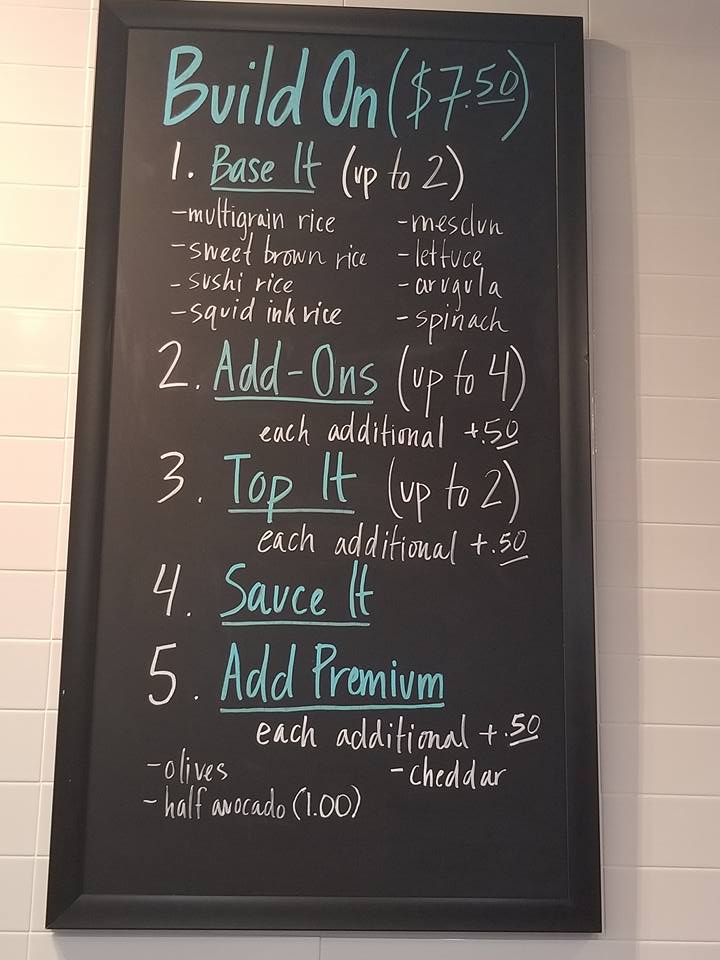 Build On ($7.50)
1. Base It (up to 2)
-multigrain rice -mesclun
-sweet brown rice -lettuce
-sushi rice -arugula
-squid ink rice -spinach
2. Add-Ons (up to 4)
each additional +.50
3. Top It (up to 2)
each additional +.50
4. Sauce It
5. Add Premium
each additional +.50
-olives -cheddar
-half avocado (1.00)